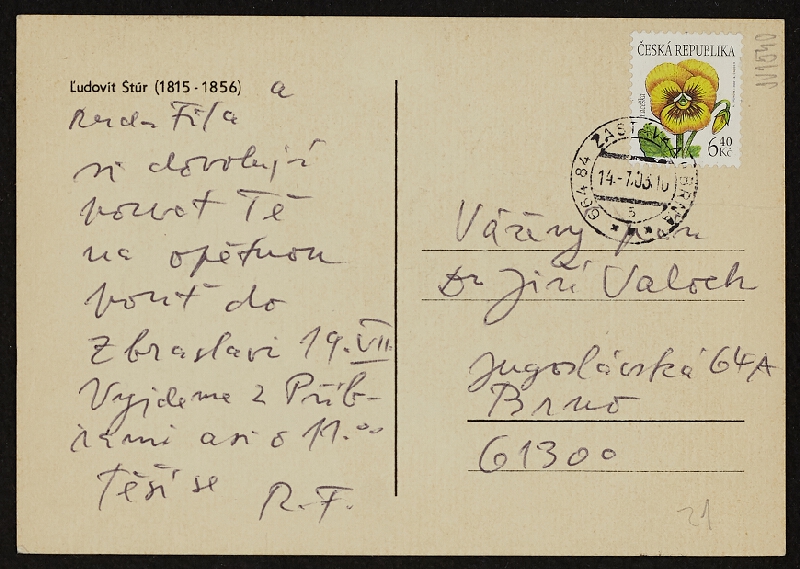 Ľudovít Štúr (1815 - 1856) a
Ruda Fila
si dovolují
pozvat Tě
na opětnou
pouť do
Zbraslavi 19.VII.
Vyjdeme z Příb-
rami asi o 11.00
Těší se
R.F.
ČESKÁ REPUBLIKA
maceška
6 40 Kč
664 84 ZASTÁVKA U BRNA
14.-7.03.10
5
Vážený pan
Dr Jiří Valoch
Jugoslávská 64A
Brno
61300
21